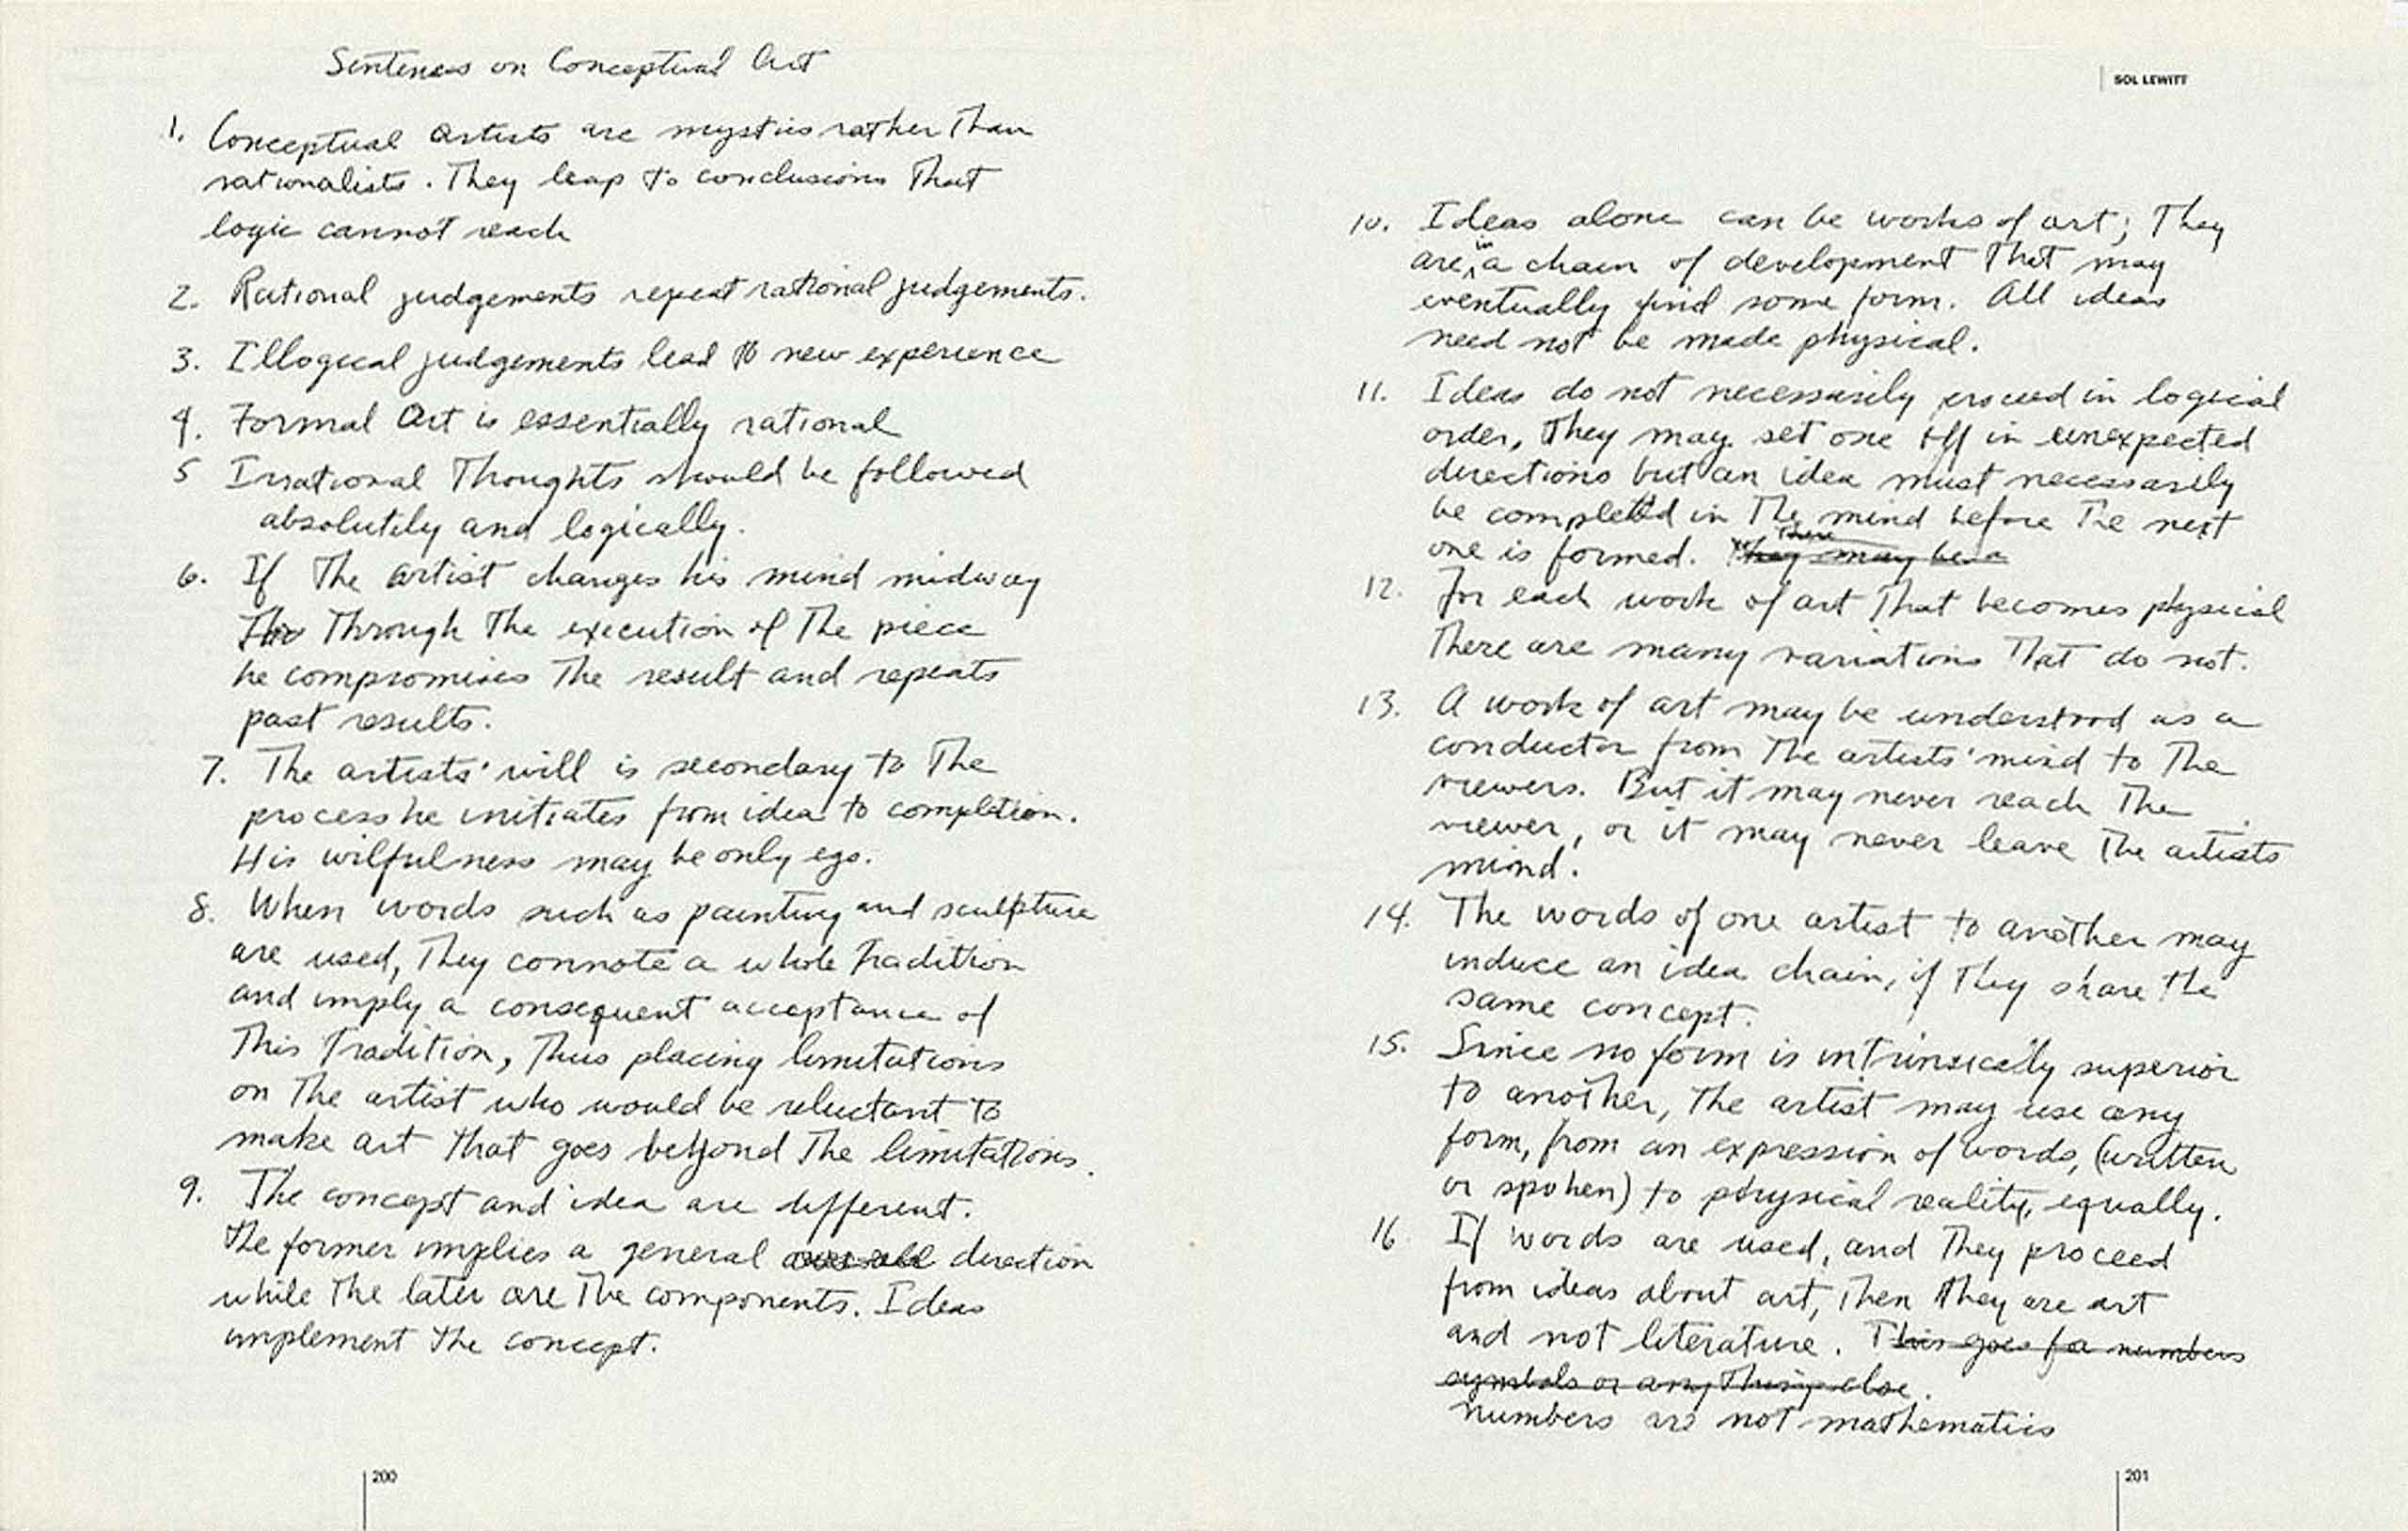 Sentences on Conceptual Art
1. Conceptual Artists are mystics rather than
rationalists. They leap to conclusions that
logic cannot reach
2. Rational judgements repeat rational judgements.
3. Illogical judgements lead to new experience
4. Formal Art is essentially rational
5 Irrational Thoughts should be followed
absolutely and logically.
6. If the artist changes his mind midway
through the execution of the piece
he compromises the result and repeats
past results.
7. The artists' will is secondary to the
process he initiates from idea to completion.
His wilfulness may be only ego.
8. When words such as painting and sculpture
are used, they connote a whole tradition
and imply a consequent acceptance of
this tradition, thus placing limitations
on the artist who would be reluctant to
make art that goes beyond the limitations.
9. The concept and idea are different.
The former implies a general over all direction
while the later are the components. Ideas
implement the concept.
200
SOL LEWITT
10. Ideas alone can be works of art; they
are in a chain of development that may
eventually find some form. All ideas
need not be made physical.
11. Ideas do not necessarily proceed in logical
order, they may set one off in unexpected
directions but an idea must necessarily
be completed in the mind before the next
one is formed. They There may be a
12. For each work of art that becomes physical
there are many variations that do not.
13. A work of art may be understood as a
conductor from the artists' mind to the
viewers. But it may never reach the
viewer, or it may never leave the artists
mind.
14. The words of one artist to another may
induce an idea chain, if they share the
same concept.
15. Since no form is intrinsically superior
to another, the artist may use any
form, from an expression of words, (written
or spoken) to physical reality, equally.
16 If words are used, and they proceed
from ideas about art, then they are art
and not literature. This goes for numbers
symbols or anything else.
numbers are not mathematics
201